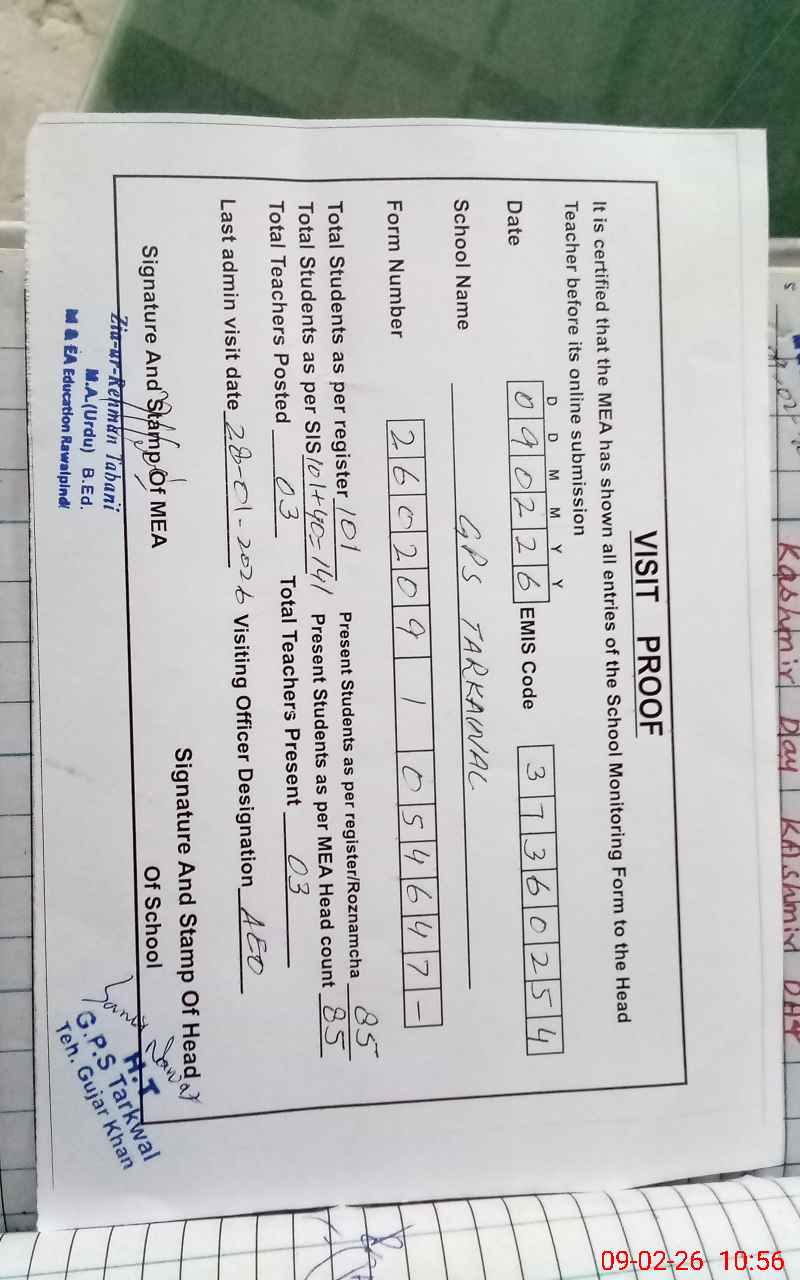 VISIT PROOF
It is certified that the MEA has shown all entries of the School Monitoring Form to the Head
Teacher before its online submission
D D M M Y Y
Date 090226 EMIS Code 37360254
School Name GPS TARKAWAL
Form Number 2602091054647-
Total Students as per register 101 Present Students as per register/Roznamcha 85
Total Students as per SIS 101+40=141 Present Students as per MEA Head count 85
Total Teachers Posted 03 Total Teachers Present 03
Last admin visit date 28-01-2026 Visiting Officer Designation AEO
Signature And Stamp Of MEA
Signature And Stamp Of Head
Of School
Zia-ur-Rehman Tabani
M.A.(Urdu) B.Ed.
M & EA Education Rawalpindi
H.T
G.P.S Tarkwal
Teh. Gujar Khan
Kashmir Day KAshmir DAY
09-02-26 10:56